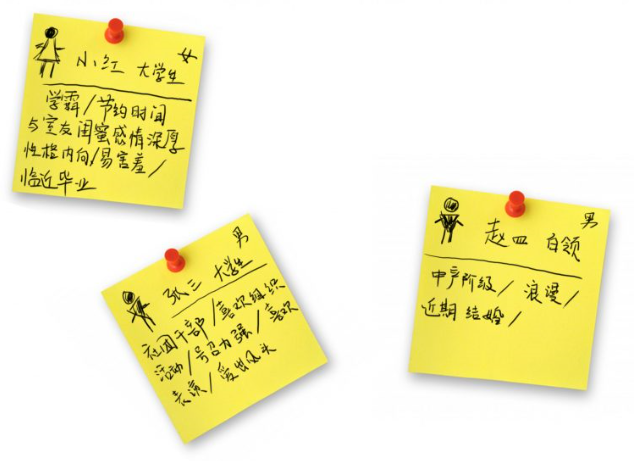 小红 大学生 女
学霸/节约时间
与室友闺蜜感情深厚
性格内向/易害羞/
临近毕业
张三 大学生 男
社团干部/喜欢组织
活动/号召力强/喜欢
表演/爱出风头
赵四 白领 男
中产阶级/浪漫/
近期结婚/